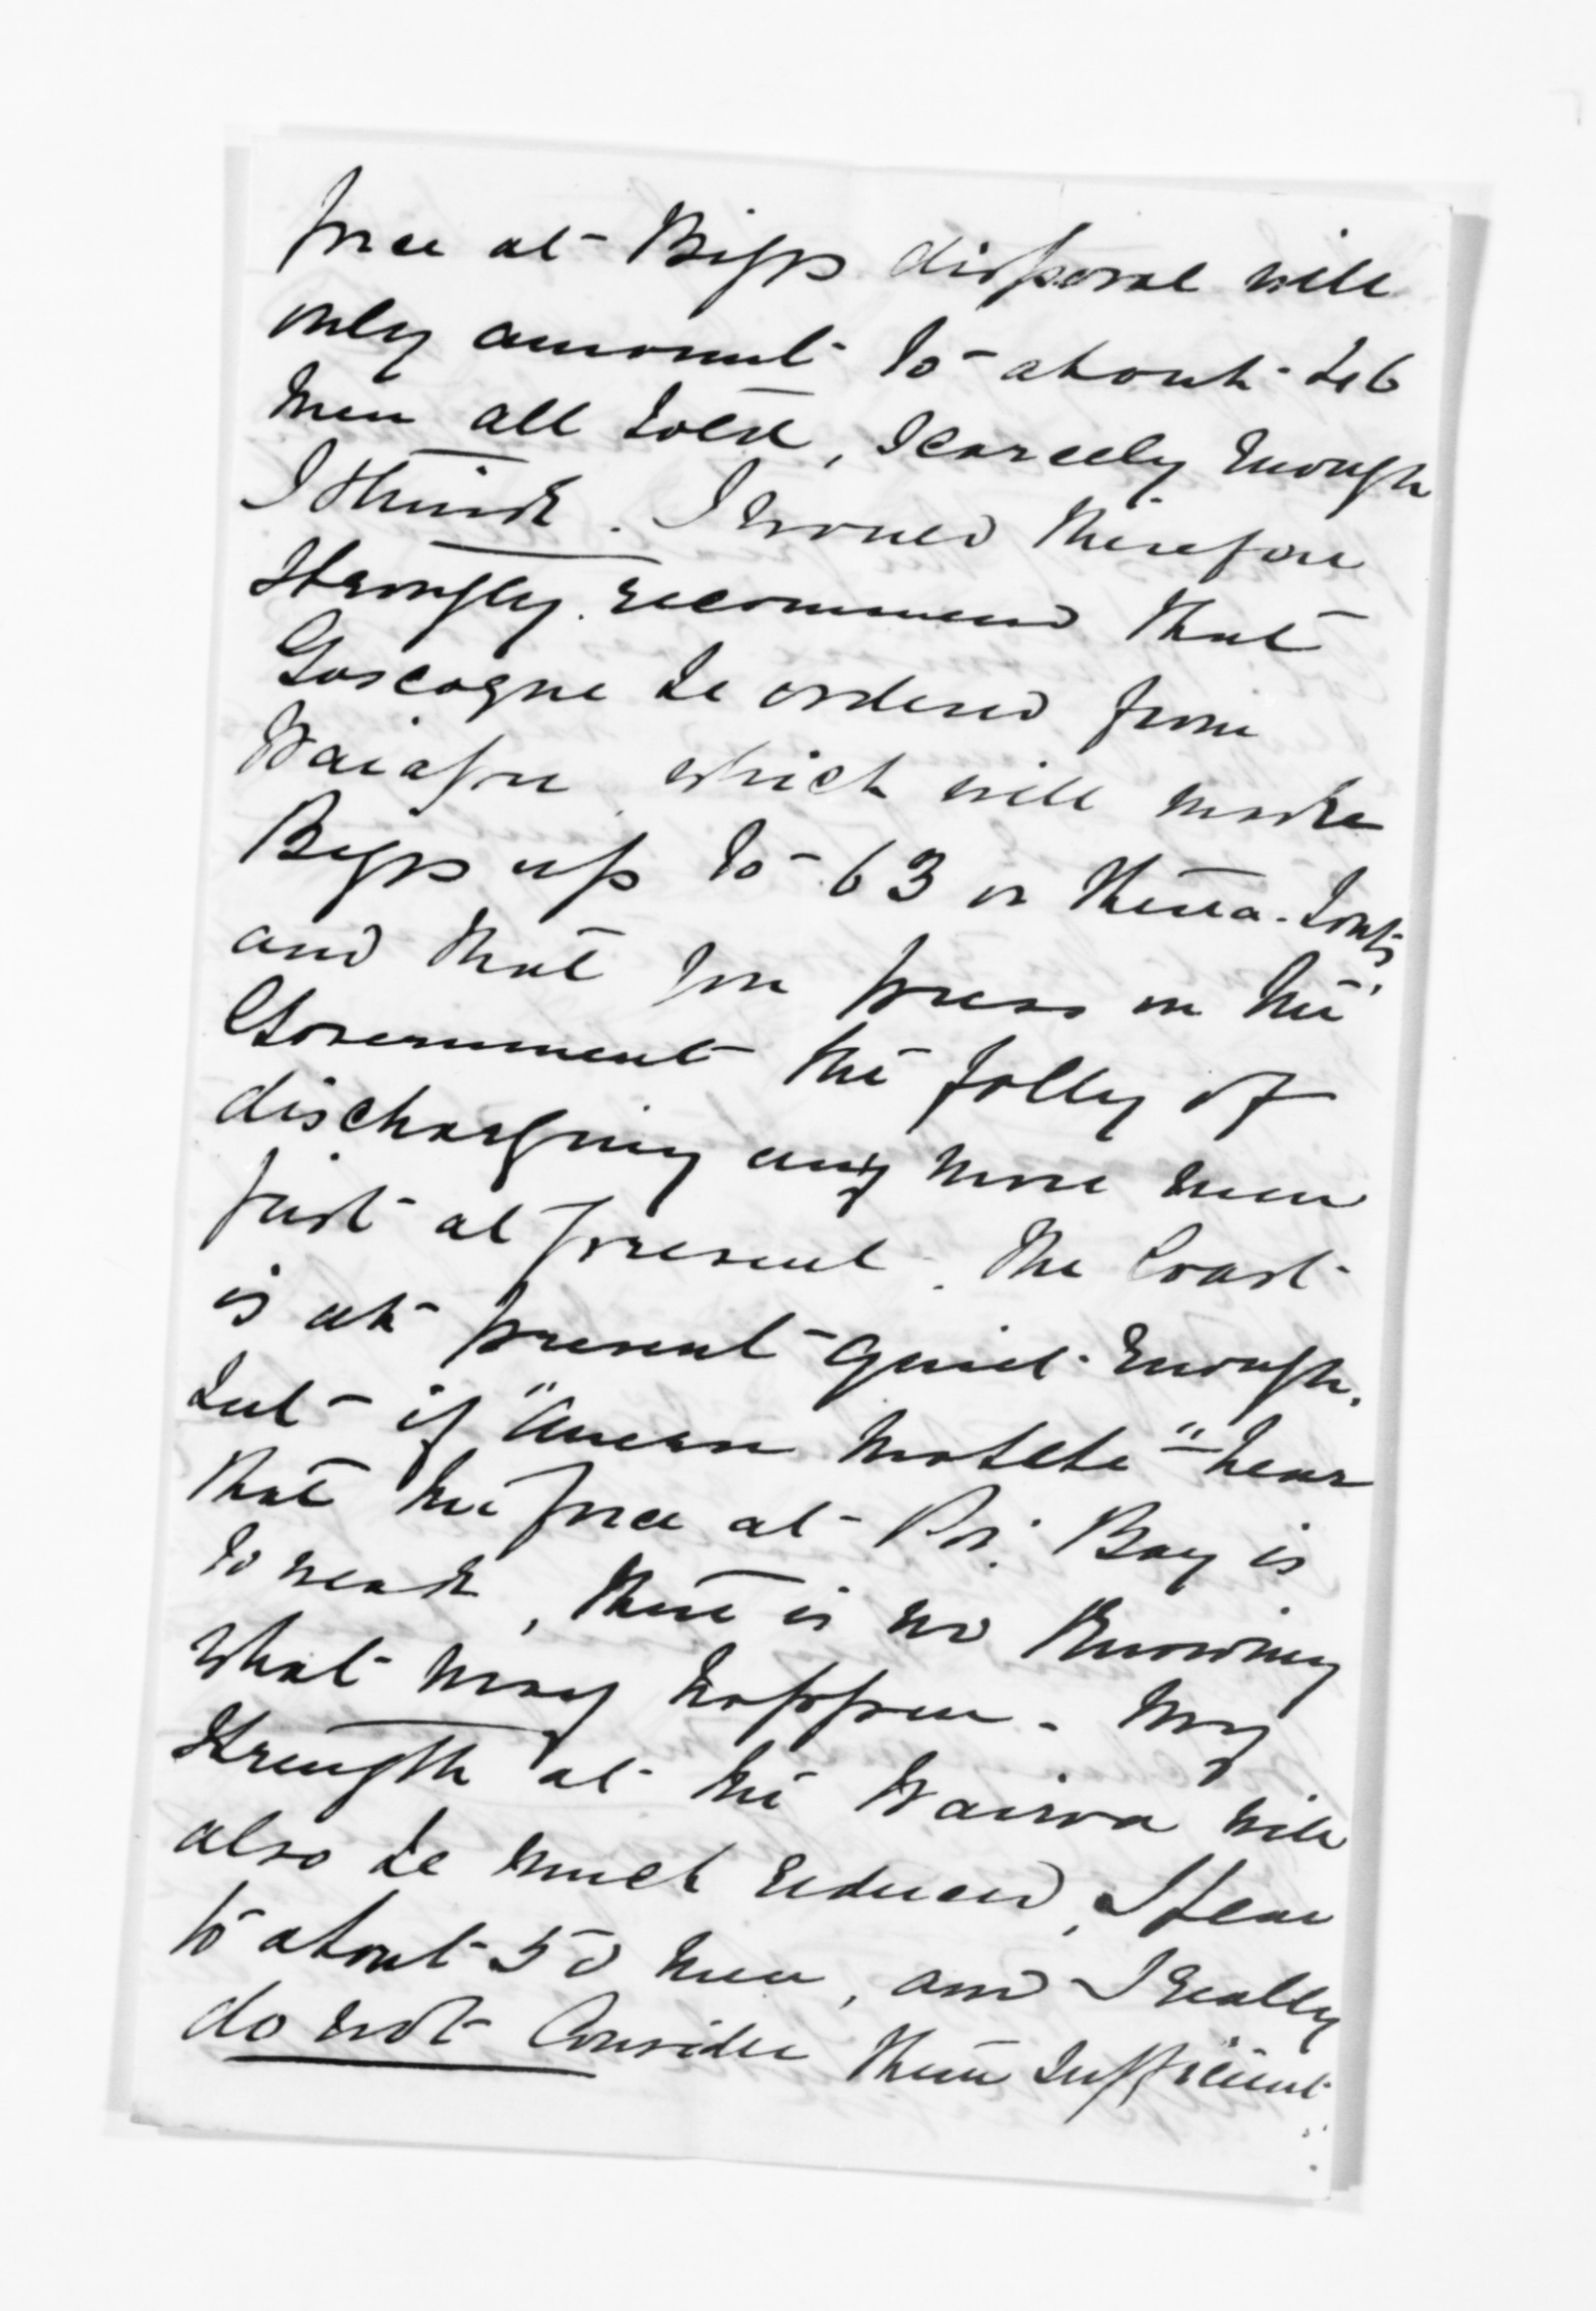 force at Biggs disposal will
only amount to about 46
men all told, scarcely enough
I think. I would therefore
strongly recommend that
Gascogne be ordered from
Waiapu which will make
Biggs up to 63 or therea-bouts
and that you press on the
Government the folly of
discharging any more men
just at present. The Coast
is at present quiet enough,
but if "Anaru Matete" hear
that the force at Po: Bay is
so weak, there is no knowing
what may happen. My
strength at the Wairoa will
also be much reduced, I fear
to about 50 men, and I really
do not consider them sufficient